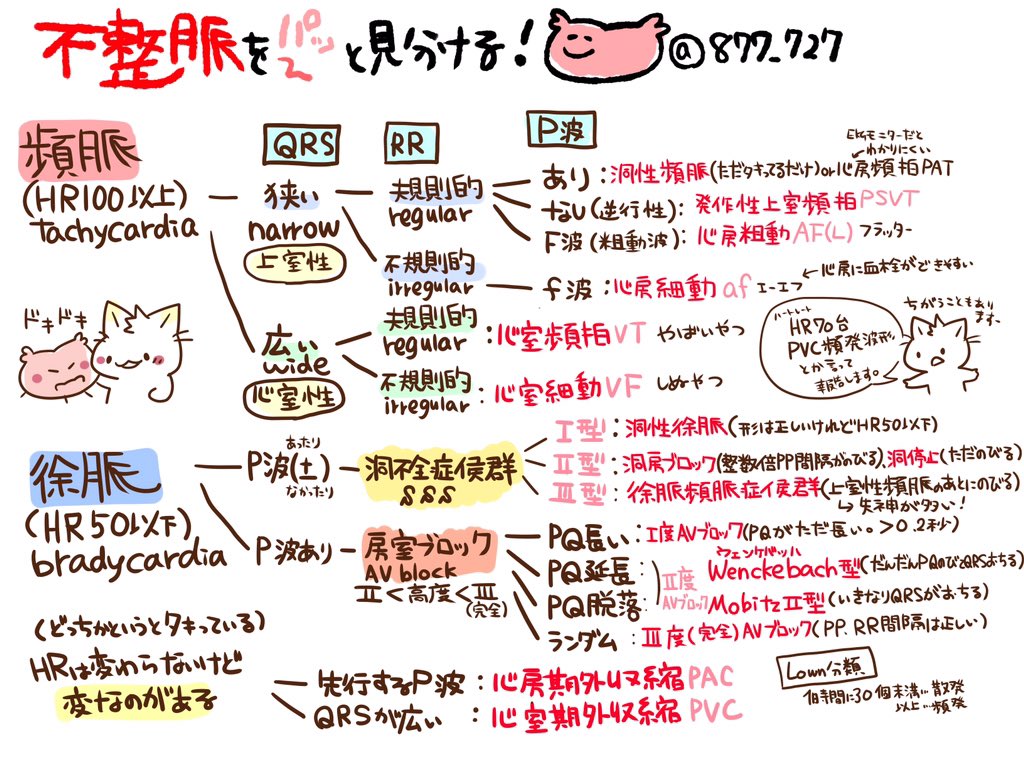 不整脈をパッと見分ける! @877_727
QRS RR P波
EKGモニターだと
わかりにくい
頻脈
(HR100以上)
tachycardia
狭い
narrow
上室性
規則的
regular
あり:洞性頻脈(ただタキってるだけ)or心房頻拍PAT
なし(逆行性):発作性上室頻拍PSVT
F波(粗動波):心房粗動AF(L)フラッター
不規則的
irregular
f波:心房細動af エーエフ
←心房に血栓ができやすい
広い
wide
心室性
規則的
regular
:心室頻拍VT やばいやつ
不規則的
irregular
:心室細動VF しぬやつ
ドキドキ
ハートレート
HR70台
PVC頻発波形
とか言って
報告します。
ちがうこともあり
ます、
徐脈
(HR50以下)
bradycardia
あったり
P波(±)
なかったり
洞不全症候群
SSS
Ⅰ型:洞性徐脈(形は正しいけれどHR50以下)
Ⅱ型:洞房ブロック(整数倍PP間隔がのびる)、洞停止(ただのびる)
Ⅲ型:徐脈頻脈症候群(上室性頻脈のあとにのびる)
↳失神が多い!
P波あり
房室ブロック
AV block
Ⅱ<高度<Ⅲ
(完全)
PQ長い:Ⅰ度AVブロック(PQがただ長い。>0.2秒)
PQ延長
PQ脱落
Ⅱ度
AVブロック
ウェンケバッハ
Wenckebach型(だんだんPQのびてQRSおちる)
MobitzⅡ型(いきなりQRSがおちる)
ランダム:Ⅲ度(完全)AVブロック(PP.RR間隔は正しい)
(どっちかというとタキっている)
HRは変わらないけど
変なのがある
先行するP波:心房期外収縮PAC
QRSが広い:心室期外収縮PVC
Lown分類
1時間に30個未満…散発
以上…頻発